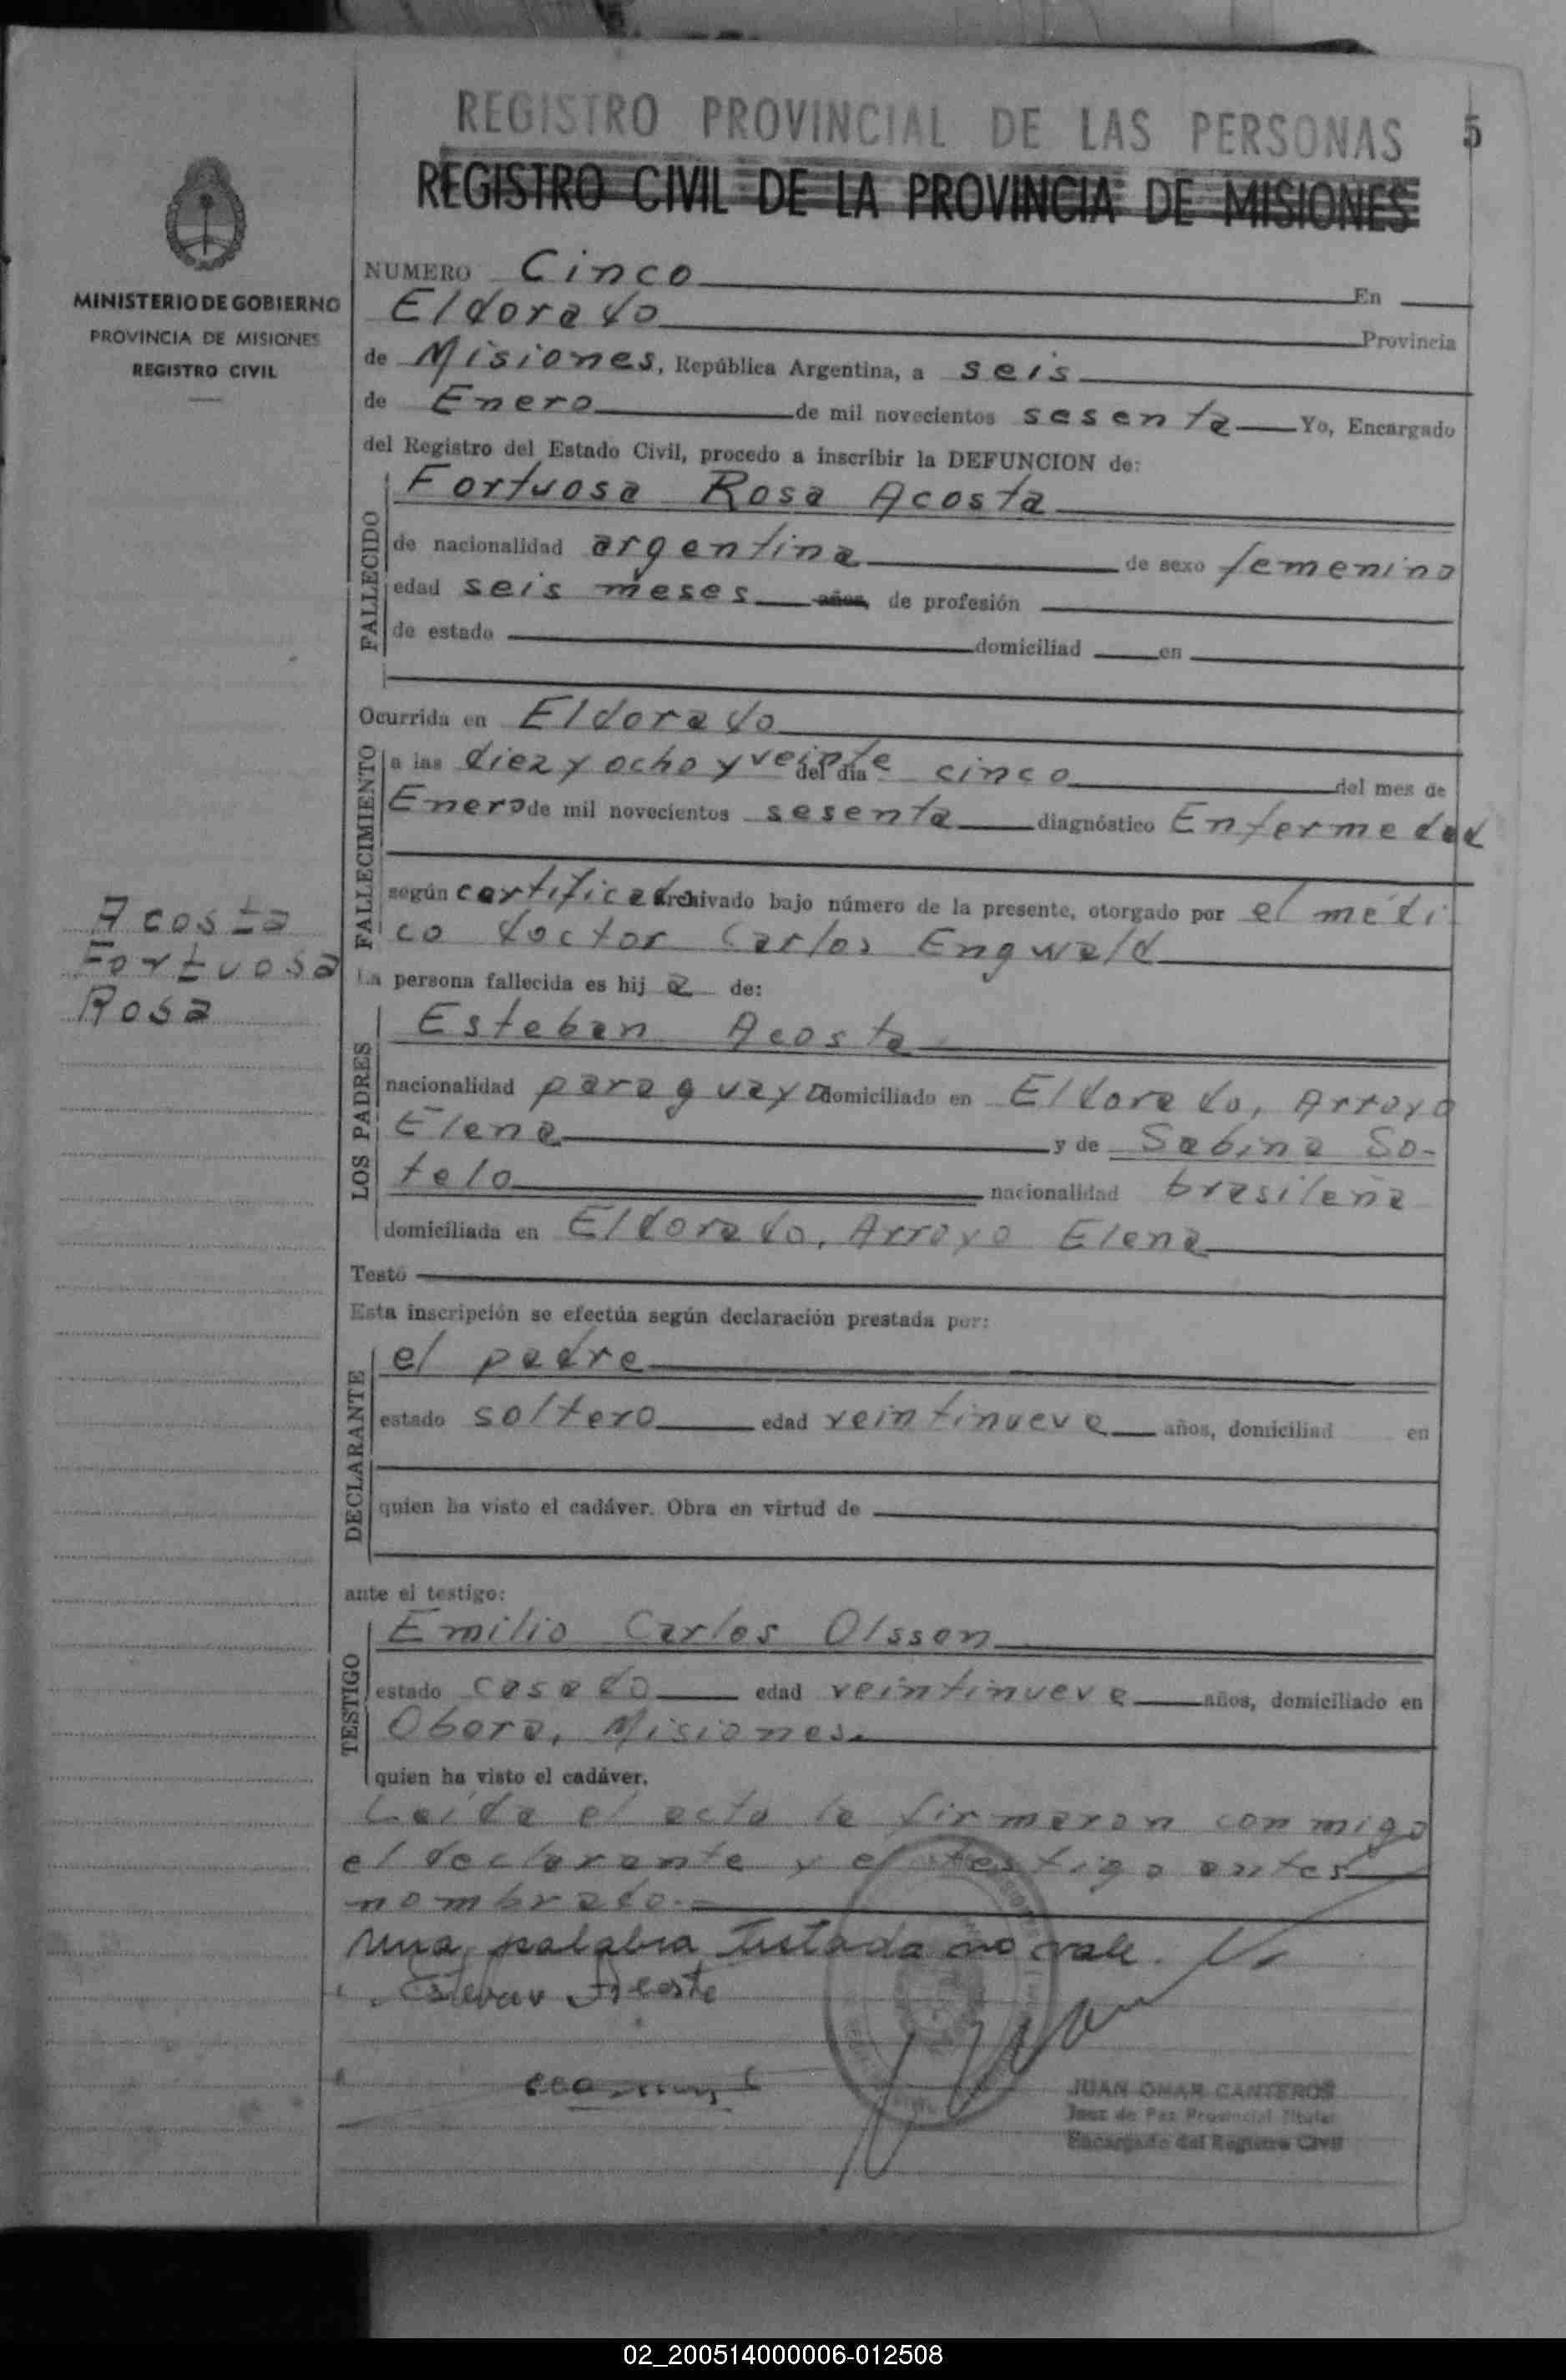 REGISTRO PROVINCIAL DE LAS PERSONAS 5
REGISTRO CIVIL DE LA PROVINCIA DE MISIONES
MINISTERIO DE GOBIERNO
PROVINCIA DE MISIONES
REGISTRO CIVIL
NUMERO Cinco En
Eldorado Provincia
de Misiones, República Argentina, a seis
de Enero de mil novecientos sesenta Yo, Encargado
del Registro del Estado Civil, procedo a inscribir la DEFUNCION de:
FALLECIDO
Fortuosa Rosa Acosta
de nacionalidad argentina de sexo femenino
edad seis meses años, de profesión
de estado domiciliad en
Ocurrida en Eldorado
FALLECIMIENTO
a las diez y ocho y veinte del día cinco del mes de
Enero de mil novecientos sesenta diagnóstico Enfermedad
según certificado archivado bajo número de la presente, otorgado por el médi
co doctor Carlos Engwald
Acosta
Fortuosa
Rosa
La persona fallecida es hij a de:
LOS PADRES
Esteban Acosta
nacionalidad paraguayo domiciliado en Eldorado, Arroyo
Elena y de Sabina So-
telo nacionalidad brasileña
domiciliada en Eldorado, Arroyo Elena
Testó
Esta inscripción se efectúa según declaración prestada por:
DECLARANTE
el padre
estado soltero edad veintinueve años, domiciliad en
quien ha visto el cadáver. Obra en virtud de
ante el testigo:
TESTIGO
Emilio Carlos Olsson
estado casado edad veintinueve años, domiciliado en
Obera, Misiones.
quien ha visto el cadáver.
Leída el acta la firmaron conmigo
el declarante y el testigo antes
nombrado.
una palabra Testada no vale.
Estevan Acosta
JUAN OMAR CANTEROS
Juez de Paz Provincial Titular
Encargado del Registro Civil
02_200514000006-012508